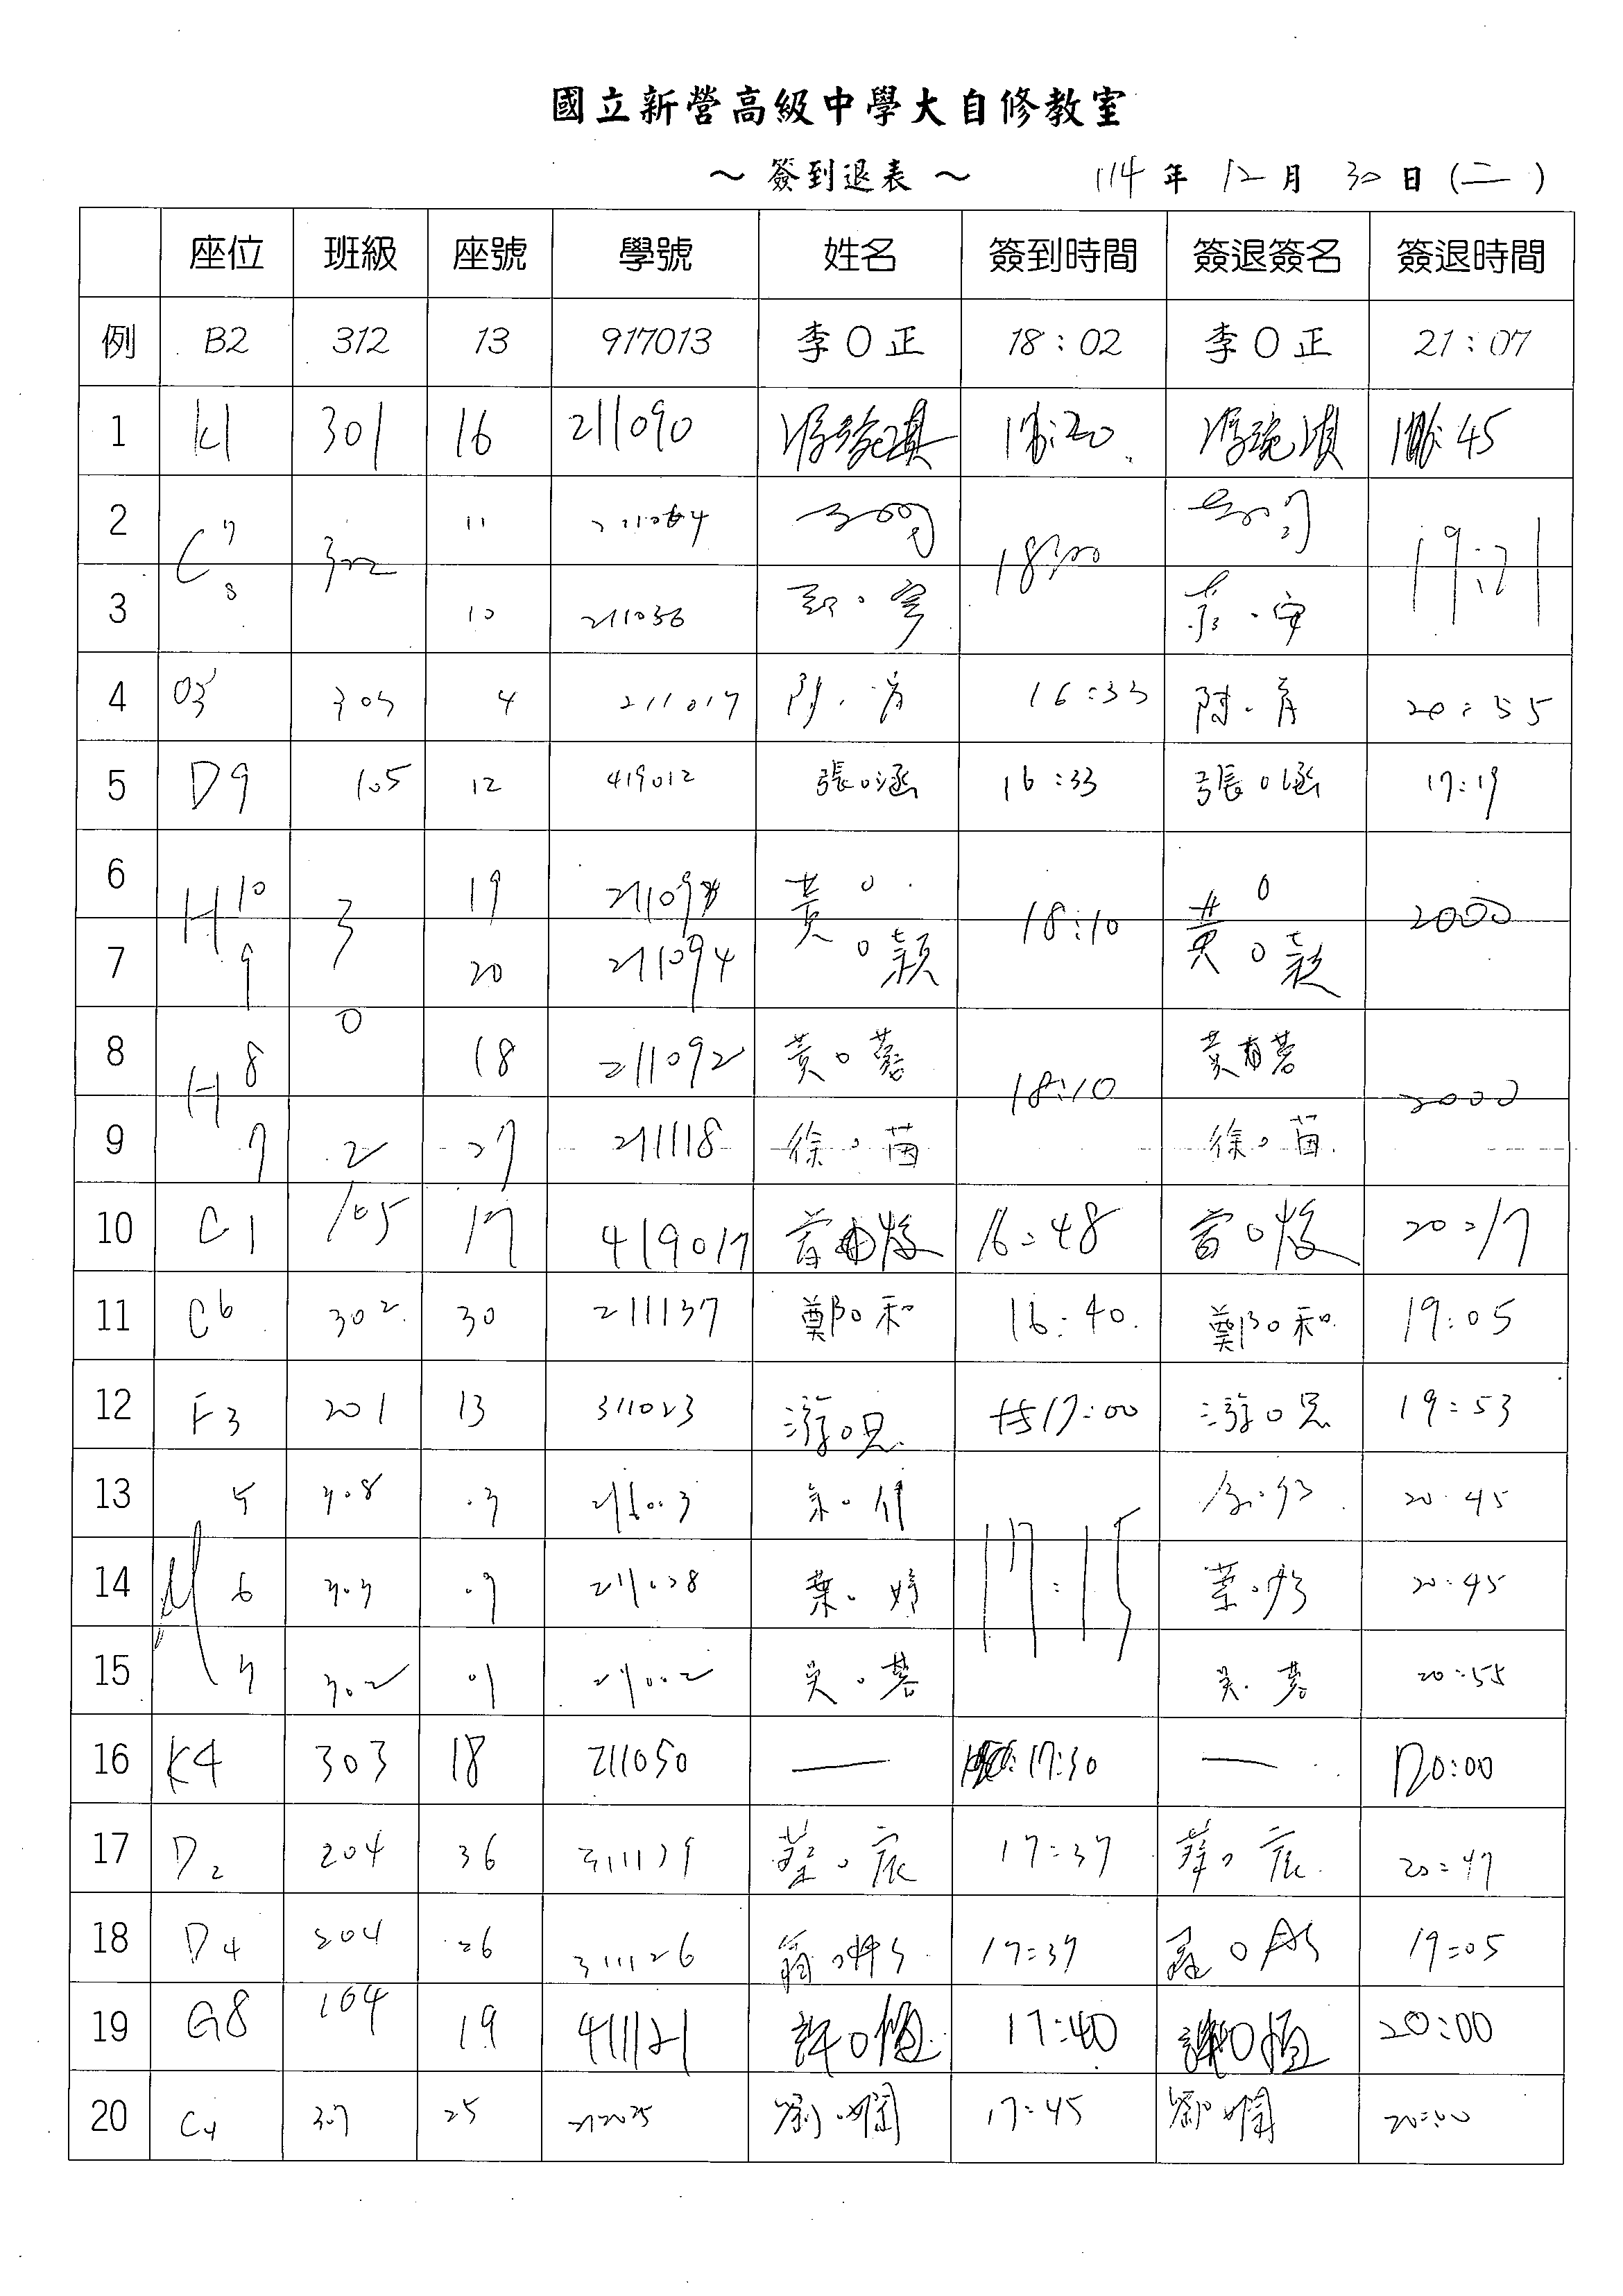 國立新營高級中學大自修教室
～ 簽到退表 ～ 114 年 12 月 30 日 (二)
座位 班級 座號 學號 姓名 簽到時間 簽退簽名 簽退時間
例 B2 312 13 917013 李O正 18:02 李O正 21:07
1 K1 301 16 211090 :20 :45
2 C7 302 11 18:00 19:21
3 8 10 211036
4 303 4 211017 陳.育 16:33 陳.育 20:55
5 D9 105 12 419012 張O涵 16:33 張O涵 17:19
6 H10 3 19 黃O 18:10 黃O 2000
7 9 20 211094 O穎 O穎
8 H8 0 18 211092 黃O蓉 18:10 黃有蓉 2000
9 7 2 27 211118 徐O茵 徐O茵
10 C1 105 17 419017 16:48 20:17
11 C6 302 30 211137 鄭O和 16:40 鄭O和 19:05
12 F3 201 13 311023 游O恩 17:00 游O恩 19:53
13 M5 308 03 17:15 20:45
14 6 303 07 葉O婷 葉O婷 20:45
15 7 302 01 吳O蓉 吳O蓉 20:55
16 K4 303 18 211050 — 17:30 — 20:00
17 D2 204 36 蔡O宸 17:37 蔡O宸 20:47
18 D4 204 26 311126 17:37 19:05
19 G8 104 19 411121 許O恒 17:40 許O恒 20:00
20 C4 307 25 劉O嫻 17:45 劉O嫻 20:00